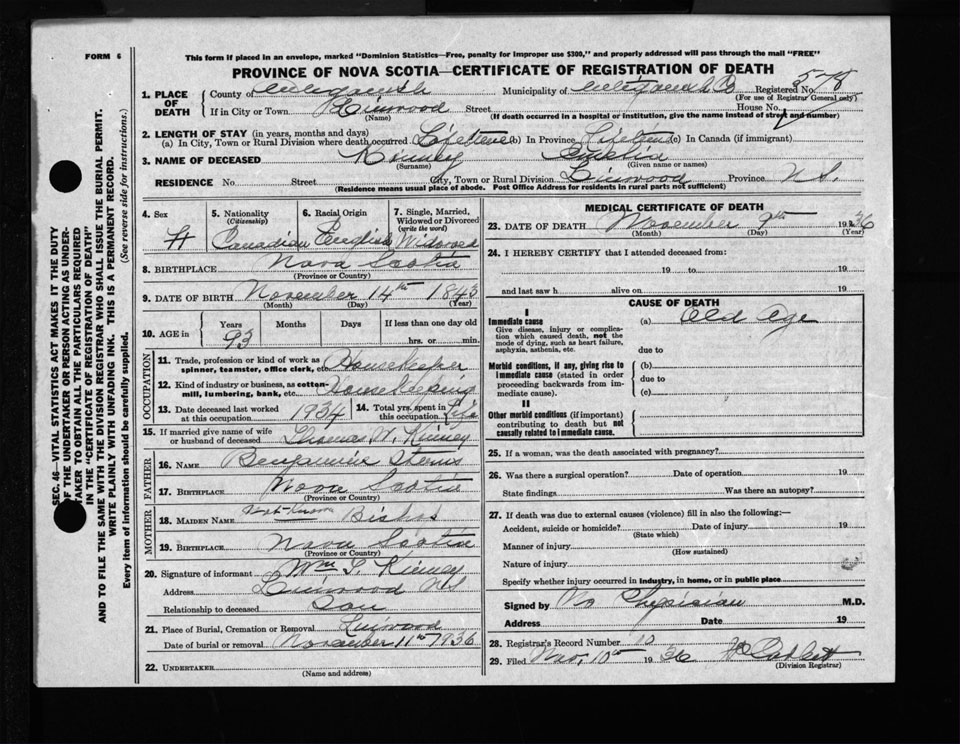 FORM 6
This form if placed in an envelope, marked "Dominion Statistics—Free, penalty for improper use $300," and properly addressed will pass through the mail "FREE"
PROVINCE OF NOVA SCOTIA—CERTIFICATE OF REGISTRATION OF DEATH
1. PLACE OF DEATH County of Antigonish Municipality of Antigonish Registered No. 578
(For use of Registrar General only)
If in City or Town Linwood Street House No.
(Name) (If death occurred in a hospital or institution, give the name instead of street and number)
2. LENGTH OF STAY (in years, months and days)
(a) In City, Town or Rural Division where death occurred Lifetime (b) In Province Lifetime (c) In Canada (if immigrant)
3. NAME OF DECEASED Kinney
(Surname) (Given name or names)
RESIDENCE No. Street City, Town or Rural Division Linwood Province N.S.
(Residence means usual place of abode. Post Office Address for residents in rural parts not sufficient)
SEC. 46—VITAL STATISTICS ACT MAKES IT THE DUTY
OF THE UNDERTAKER OR PERSON ACTING AS UNDER-
TAKER TO OBTAIN ALL THE PARTICULARS REQUIRED
IN THE "CERTIFICATE OF REGISTRATION OF DEATH"
AND TO FILE THE SAME WITH THE DIVISION REGISTRAR WHO SHALL ISSUE THE BURIAL PERMIT.
WRITE PLAINLY WITH UNFADING INK. THIS IS A PERMANENT RECORD.
Every item of information should be carefully supplied. (See reverse side for instructions.)
4. Sex 5. Nationality (Citizenship) 6. Racial Origin 7. Single, Married, Widowed or Divorced (write the word)
Canadian English Widowed
8. BIRTHPLACE Nova Scotia
(Province or Country)
9. DATE OF BIRTH November 14th 1843
(Month) (Day) (Year)
10. AGE in Years Months Days If less than one day old
93 hrs. or min.
OCCUPATION
11. Trade, profession or kind of work as spinner, teamster, office clerk, etc. Housekeeper
12. Kind of industry or business, as cotton-mill, lumbering, bank, etc. Housekeeping
13. Date deceased last worked at this occupation 1934 14. Total yrs. spent in this occupation Life
15. If married give name of wife or husband of deceased Thomas W. Kinney
FATHER
16. NAME Benjamin
17. BIRTHPLACE Nova Scotia
(Province or Country)
MOTHER
18. MAIDEN NAME Not-known
19. BIRTHPLACE Nova Scotia
(Province or Country)
20. Signature of informant Wm Kinney
Address Linwood N.S
Relationship to deceased Son
21. Place of Burial, Cremation or Removal Linwood
Date of burial or removal November 11th 1936
22. UNDERTAKER
(Name and address)
MEDICAL CERTIFICATE OF DEATH
23. DATE OF DEATH November 9th 1936
(Month) (Day) (Year)
24. I HEREBY CERTIFY that I attended deceased from:
19 to 19
and last saw h alive on 19
CAUSE OF DEATH
I
Immediate cause (a) Old Age
Give disease, injury or complication which caused death, not the mode of dying, such as heart failure, asphyxia, asthenia, etc. due to
Morbid conditions, if any, giving rise to immediate cause (stated in order proceeding backwards from immediate cause). (b)
due to
(c)
II
Other morbid conditions (if important) contributing to death but not causally related to immediate cause.
25. If a woman, was the death associated with pregnancy?
26. Was there a surgical operation? Date of operation 19
State findings Was there an autopsy?
27. If death was due to external causes (violence) fill in also the following:—
Accident, suicide or homicide? Date of injury 19
(State which)
Manner of injury
(How sustained)
Nature of injury
Specify whether injury occurred in industry, in home, or in public place
Signed by No Physician M.D.
Address Date 19
28. Registrar's Record Number 10
29. Filed Nov. 10th 1936
(Division Registrar)